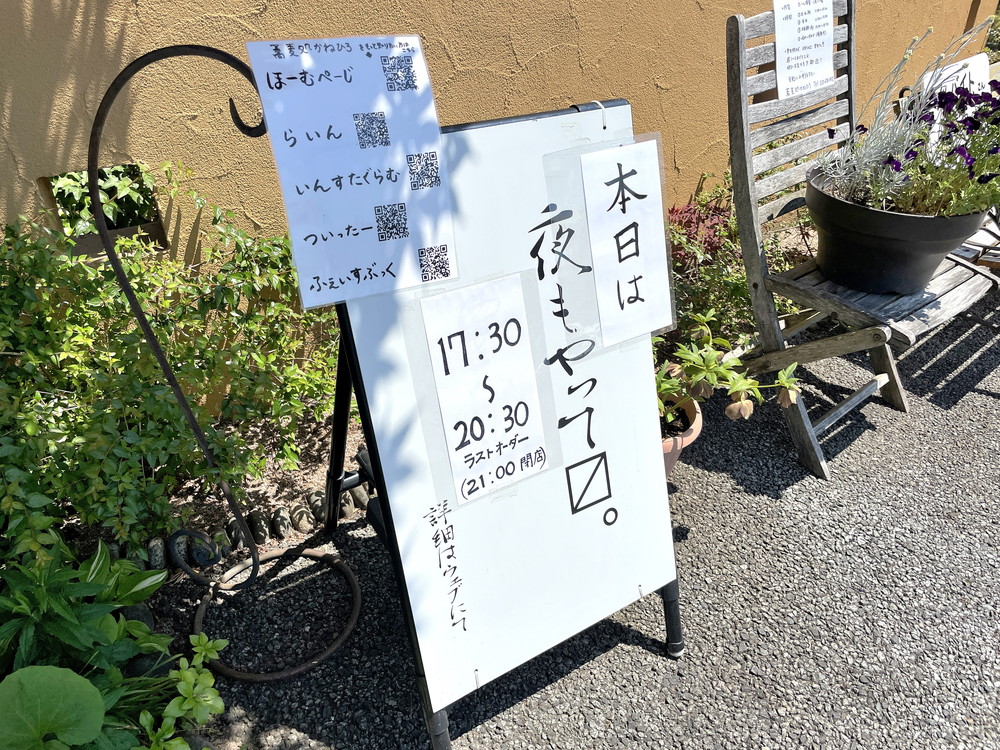 蕎麦
かねひろ
ほーむぺーじ
らいん
いんすたぐらむ
ついったー
ふぇいすぶっく
本日は
夜もやって〼。
17:30
〜
20:30
ラストオーダー
(21:00 閉店)
詳細はウェブにて